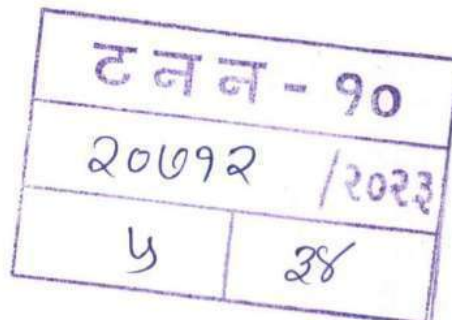 ट न न - १०
२०७१२ /२०२३
५ ३४